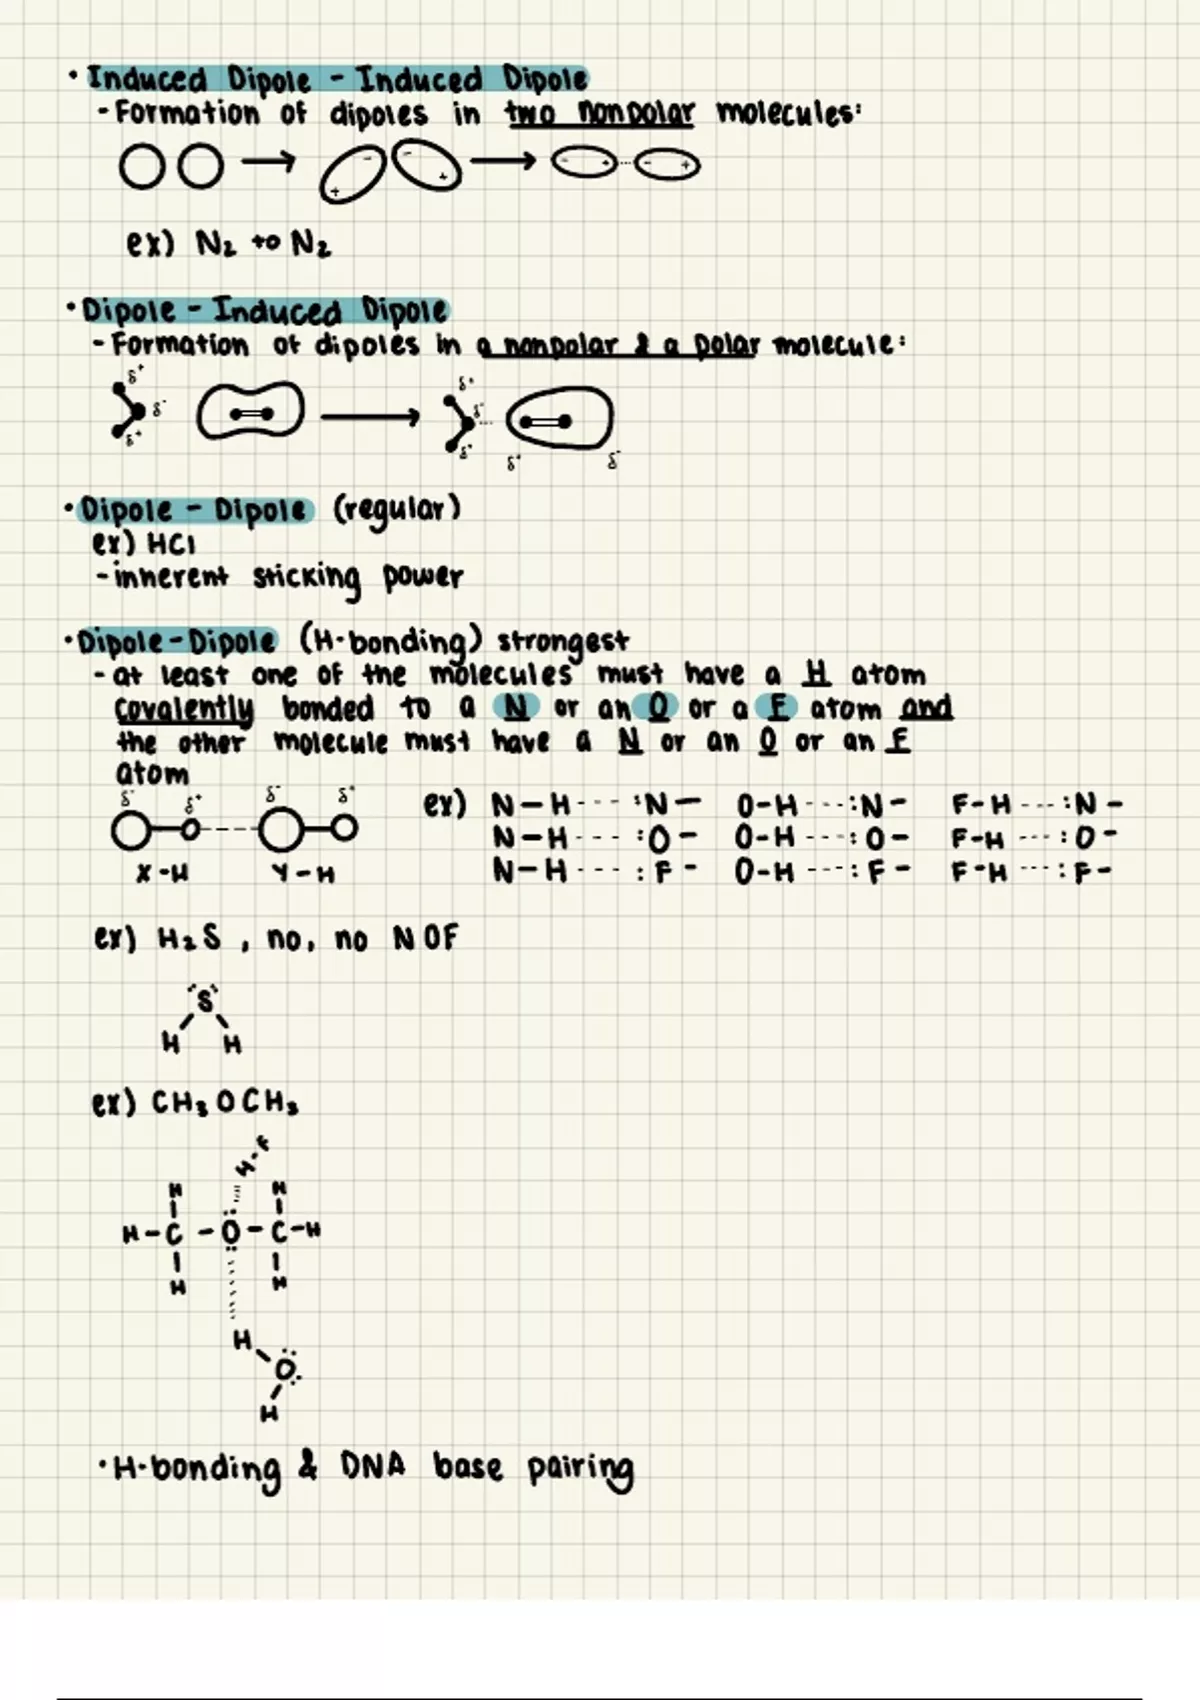 • Induced Dipole - Induced Dipole
- Formation of dipoles in two nonpolar molecules:
- - + +
- + - +
ex) N₂ to N₂
• Dipole - Induced Dipole
- Formation of dipoles in a nonpolar & a polar molecule:
δ⁺ δ⁻ δ⁺
δ⁺ δ⁻ δ⁺ δ⁺ δ⁻
• Dipole - Dipole (regular)
ex) HCl
- inherent sticking power
• Dipole-Dipole (H-bonding) strongest
- at least one of the molecules must have a H atom
covalently bonded to a N or an O or a F atom and
the other molecule must have a N or an O or an F
atom
δ⁻ δ⁺ δ⁻ δ⁺
X-H Y-H
ex) N-H --- :N- O-H ---:N- F-H ---:N-
N-H --- :O- O-H ---:O- F-H ---:O-
N-H --- :F- O-H ---:F- F-H ---:F-
ex) H₂S, no, no NOF
S
H H
ex) CH₃OCH₃
H-F
H H
H-C-O-C-H
H H
H
O
H
• H-bonding & DNA base pairing